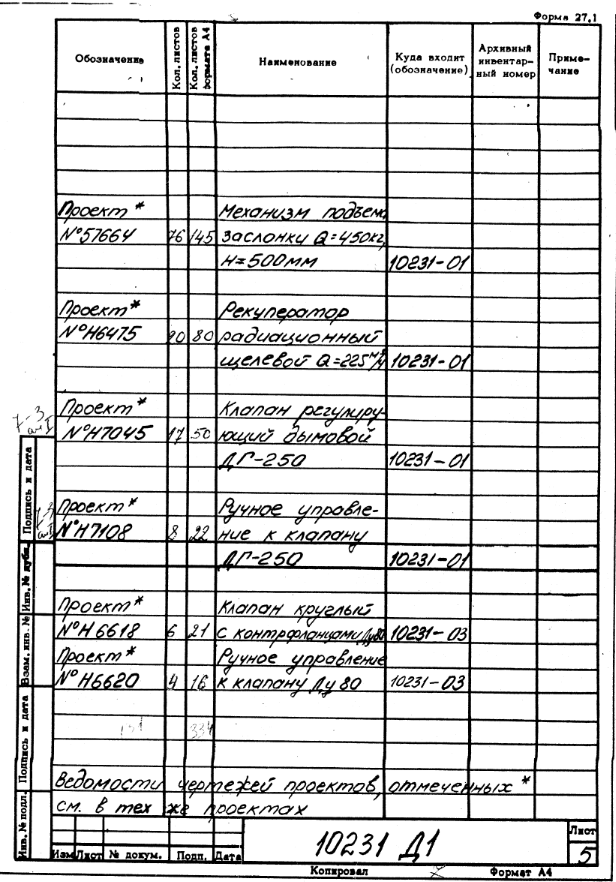 Форма 27.1
Обозначение Кол. листов Кол. листов формата А4 Наименование Куда входит (обозначение) Архивный инвентар-ный номер Приме-чание
Проект * Механизм подъема
N°57664 76 145 заслонки Q=450кг,
H=500мм 10231-01
Проект * Рекуператор
N°Н6475 20 80 радиационный
щелевой Q=225м³/ч 10231-01
Проект * Клапан регулиру-
N°Н7045 17 50 ющий дымовой
ДГ-250 10231-01
Проект * Ручное управле-
N°Н7108 8 22 ние к клапану
ДГ-250 10231-01
Проект * Клапан круглый
N°Н6618 6 21 с контрфланцами Ду80 10231-03
Проект * Ручное управление
N°Н6620 4 16 к клапану Ду 80 10231-03
131 334
Ведомости чертежей проектов, отмеченных *
см. в тех же проектах
Инв. № подл. Подпись и дата Взам. инв. № Инв. № дубл. Подпись и дата
10231 Д1
Лист
5
Изм Лист № докум. Подп. Дата
Копировал Формат А4